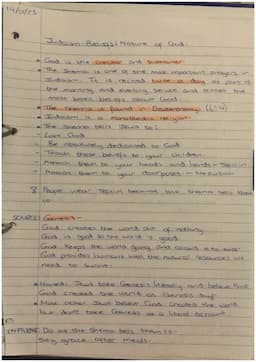 Judaism - Beliefs: Nature of God
God is the creator and sustainer
The Shema is one of the most important prayers in
Judaism. It is recited twice a day as part of
the morning and evening service and
most basic beliefs about God.
The Shema is found in Deuteronomy (6:4)
Judaism is a monotheistic religion
The Shema tells Jews to:
- Love God
- Be absolutely dedicated to God
- Teach these beliefs to your children.
them to your heads and hands - Tefillin
them to your doorposts - Mezuzah
wear Tefillin because the Shema tells them
to.
Genesis -
God created the world out of nothing.
God is good so the world is good.
God keeps the world going and
God provides humans with the natural resources we
need to survive.
Jews take Genesis literally and believe that
God created the world as Genesis says.
Most other Jews believe God created the world
but don't take Genesis as a literal account.
Do as the Shema tells them to.
Say grace after meals.